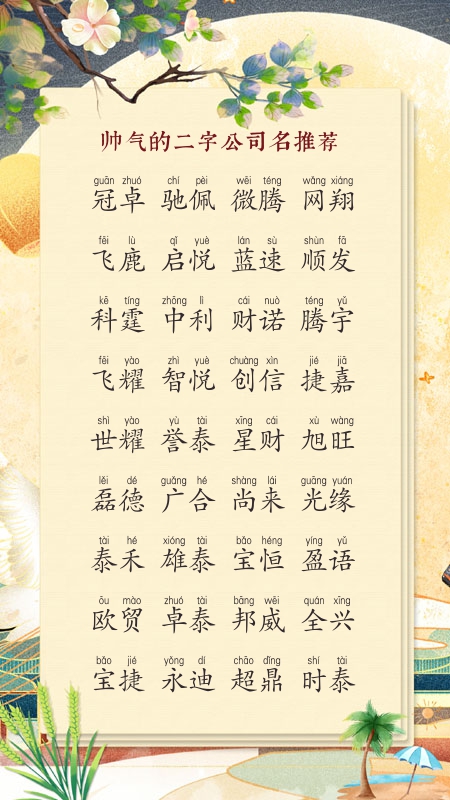 帅气的二字公司名推荐
guān zhuó chí pèi wēi téng wǎng xiáng
冠卓 驰佩 微腾 网翔
fēi lù qǐ yuè lán sù shùn fā
飞鹿 启悦 蓝速 顺发
kē tíng zhōng lì cái nuò téng yǔ
科霆 中利 财诺 腾宇
fēi yào zhì yuè chuàng xìn jié jiā
飞耀 智悦 创信 捷嘉
shì yào yù tài xīng cái xù wàng
世耀 誉泰 星财 旭旺
lěi dé guǎng hé shàng lái guāng yuán
磊德 广合 尚来 光缘
tài hé xióng tài bǎo héng yíng yǔ
泰禾 雄泰 宝恒 盈语
ōu mào zhuó tài bāng wēi quán xīng
欧贸 卓泰 邦威 全兴
bǎo jié yǒng dí chāo dǐng shí tài
宝捷 永迪 超鼎 时泰